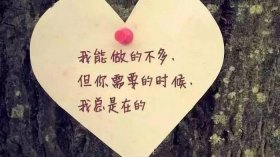 我能做的不多.
但你需要的时候.
我总是在的